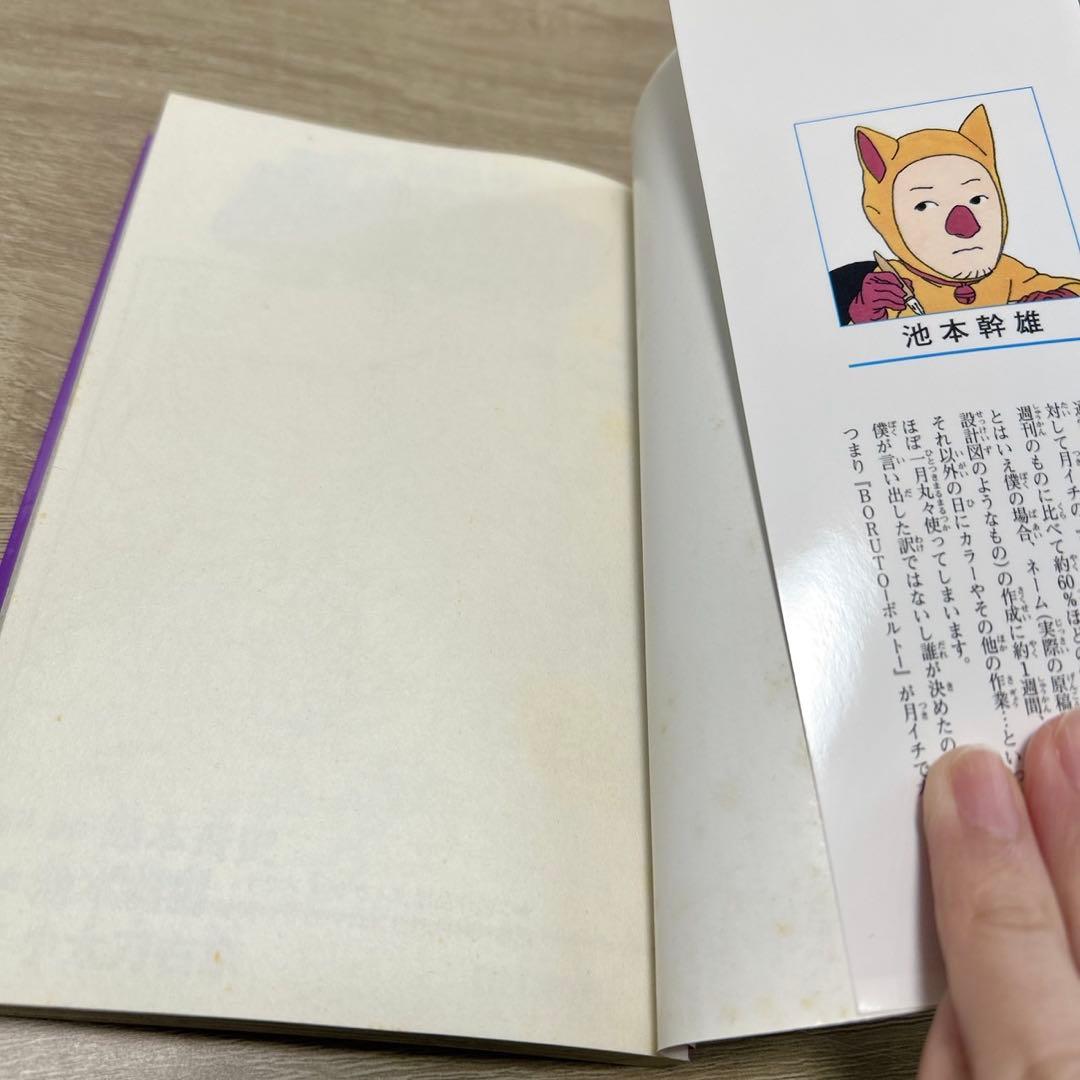 池本幹雄
対して月イチの
週刊のものに比べて約60%ほどの
とはいえ僕の場合、ネーム(実際の原稿
設計図のようなもの)の作成に約1週間、
それ以外の日にカラーやその他の作業…とい
ほぼ一月丸々使ってしまいます。
僕が言い出した訳ではないし誰が決めたの
つまり『BORUTO-ボルト-』が月イチで